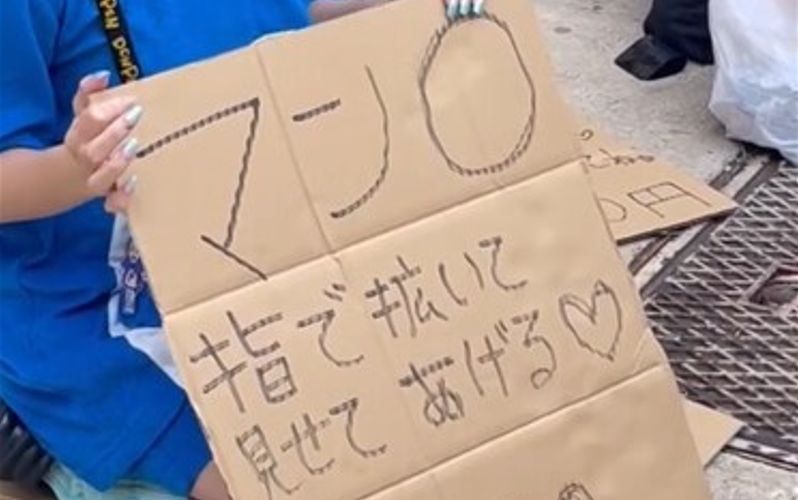 マン〇
指で拡いて
見せてあげる♡
0円